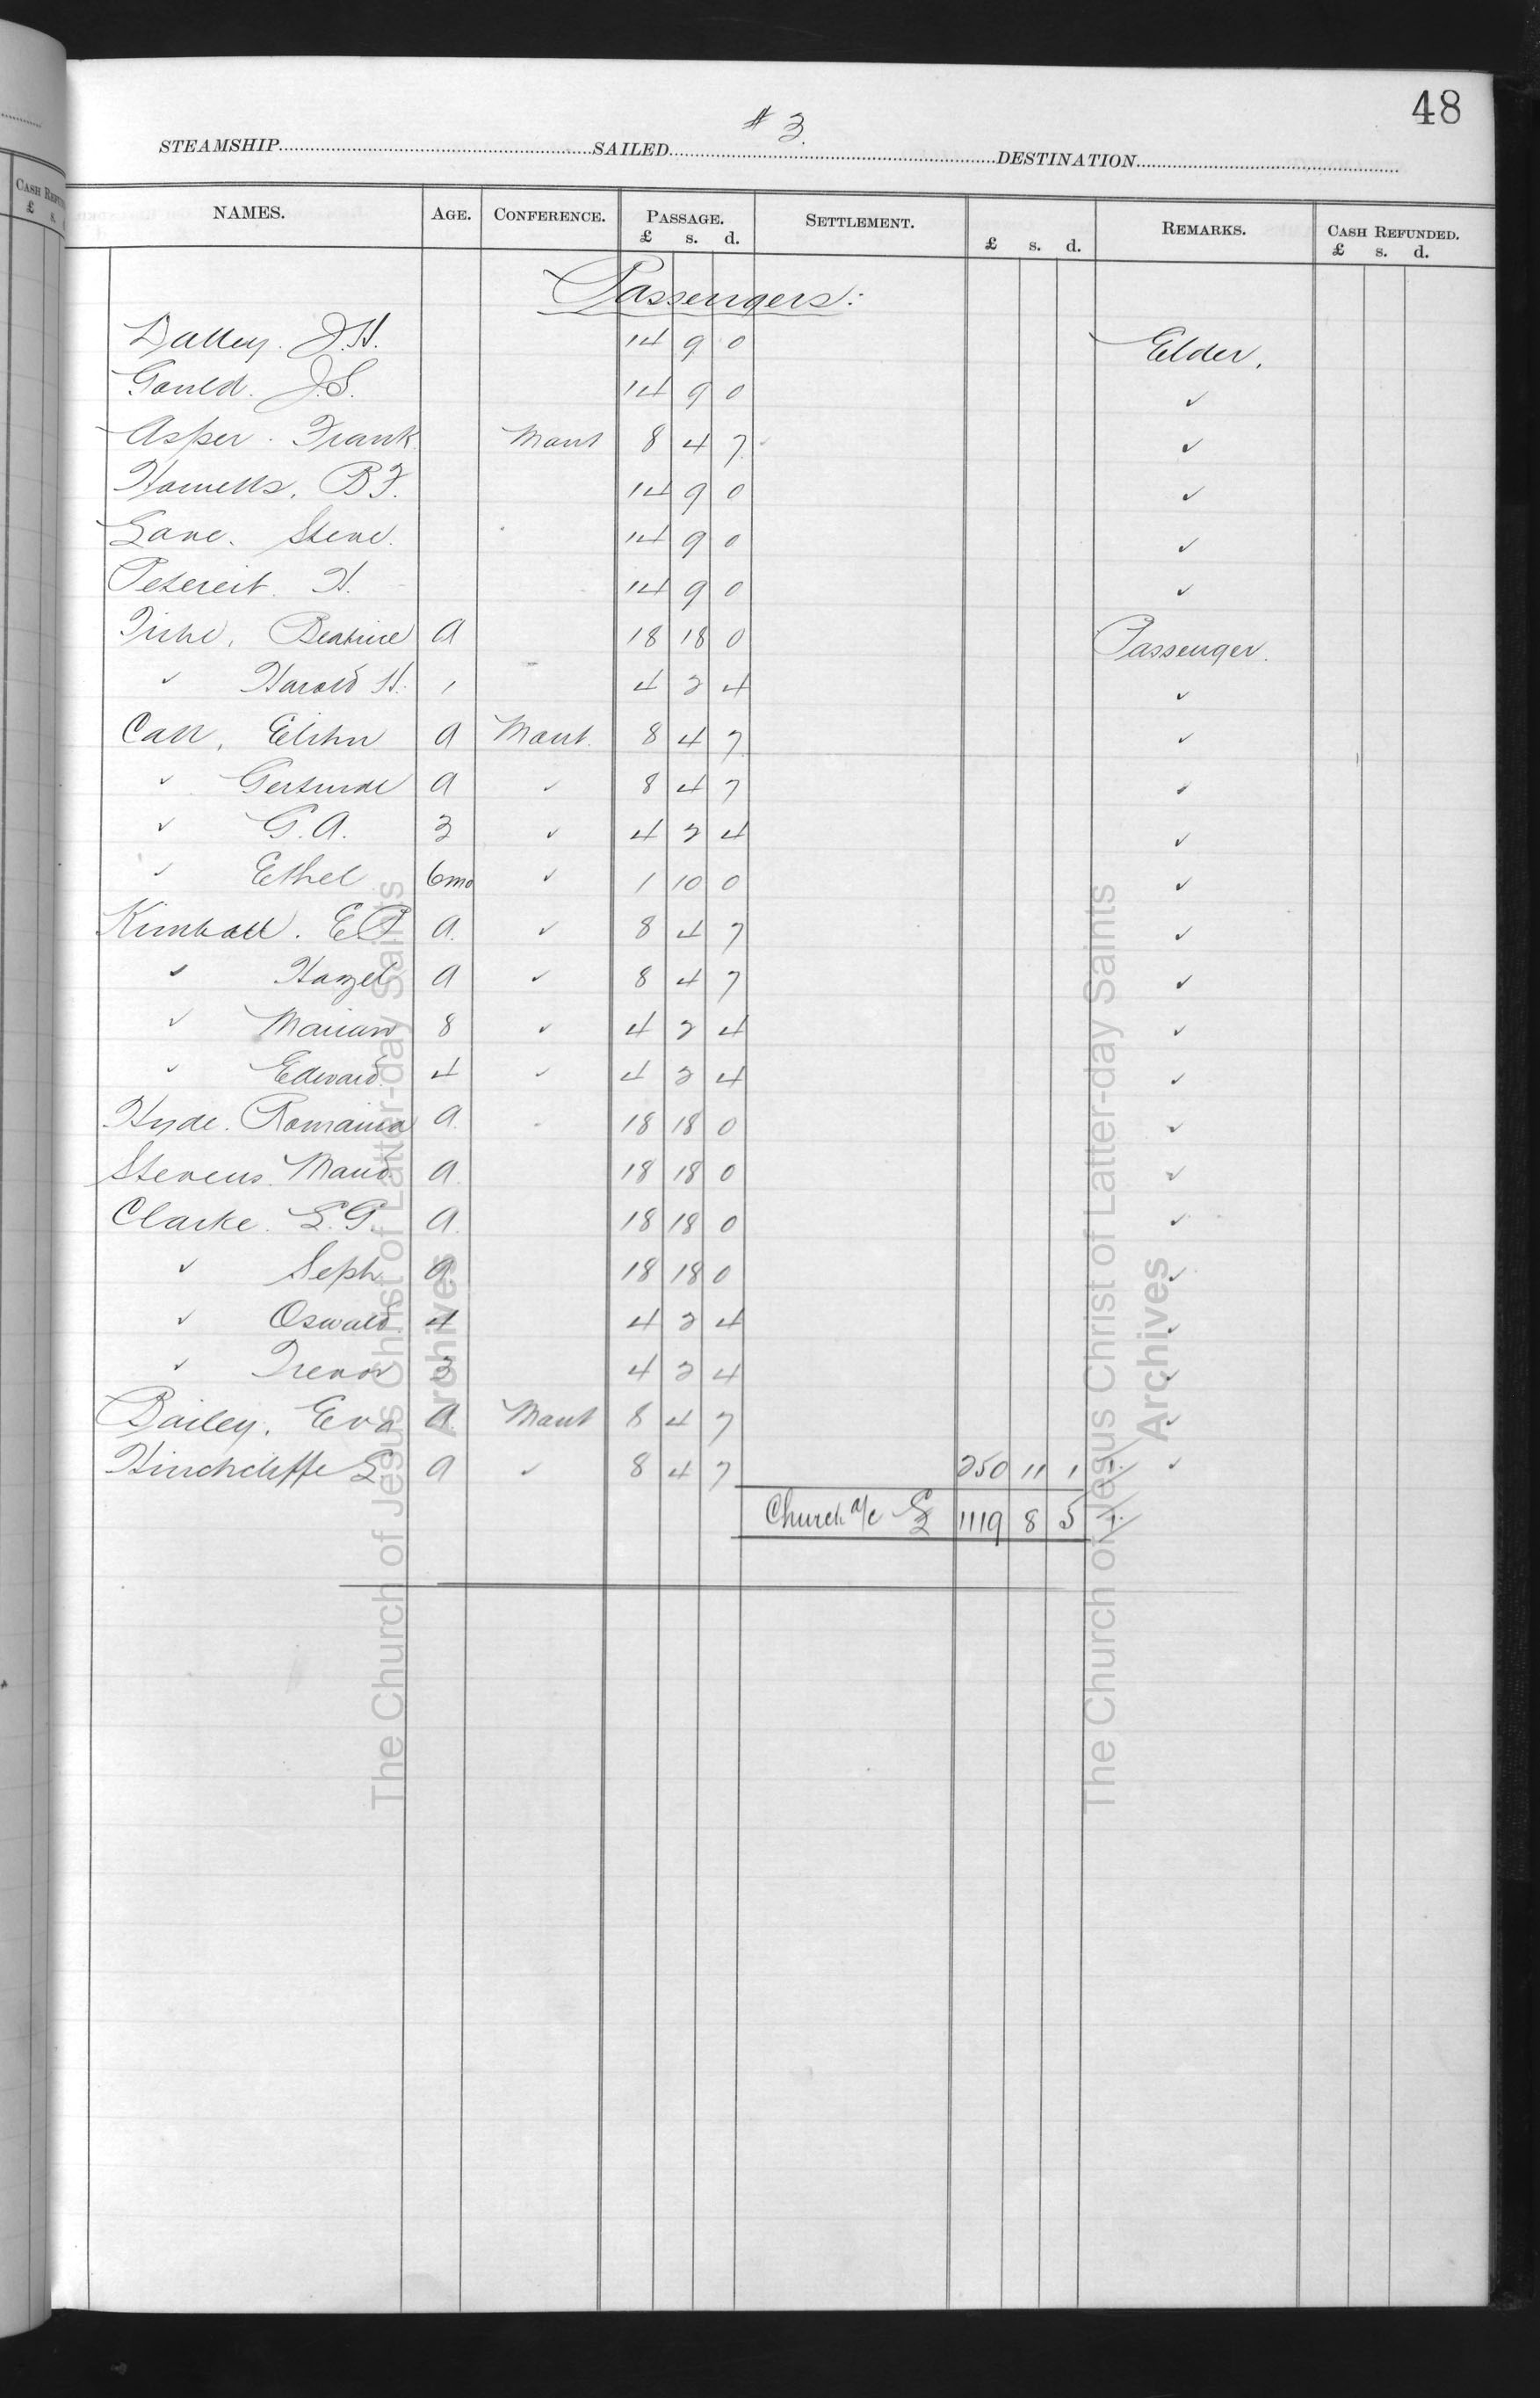 48
# 3.
STEAMSHIP SAILED DESTINATION
NAMES. AGE. CONFERENCE. PASSAGE. SETTLEMENT. REMARKS. CASH REFUNDED.
£ s. d. £ s. d. £ s. d.
Passengers:
Dalley. J.H. 14 9 0 Elder.
Gould. J.S. 14 9 0 ✓
Asper. Frank Maut 8 4 7 ✓
Howells. B.F. 14 9 0 ✓
Lane. Steve. 14 9 0 ✓
Petereit. H. 14 9 0 ✓
Beatrice a 18 18 0 Passenger.
✓ Harold H. 1 4 2 4 ✓
Call, Elihu a Maut. 8 4 7 ✓
✓ Gertrude a ✓ 8 4 7 ✓
✓ G.A. 3 ✓ 4 2 4 ✓
✓ Ethel 6mo ✓ 1 10 0 ✓
Kimball. E.P. a. ✓ 8 4 7 ✓
✓ Hazel a ✓ 8 4 7 ✓
✓ Marian 8 ✓ 4 2 4 ✓
✓ Edward. 4 ✓ 4 2 4 ✓
Hyde. Romania a. 18 18 0 ✓
Stevens. Maud. a. 18 18 0 ✓
Clarke. S.G. a. 18 18 0 ✓
✓ Seph a. 18 18 0 ✓
✓ Oswald 4 4 2 4 ✓
✓ Trevor 3 4 2 4 ✓
Bailey. Eva a. Maut 8 4 7 ✓
Hinchcliffe S a ✓ 8 4 7 250 11 1 ✓
Church a/c 1119 8 5
The Church of Jesus Christ of Latter-day Saints
Archives
The Church of Jesus Christ of Latter-day Saints
Archives
CASH
£ s.